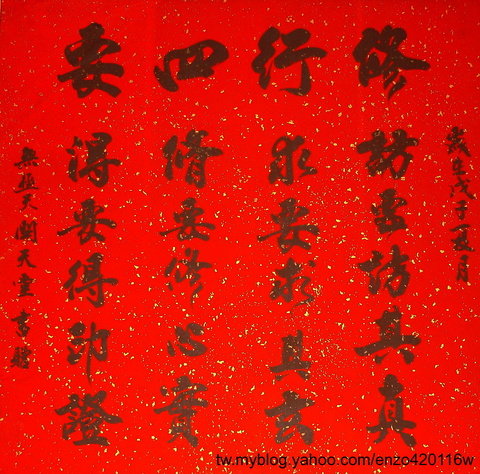 修行四要
歲在戊子夏月
訪要訪其真
求要求其玄
脩要修心實
得要得印證
無極天 天 書贈
tw.myblog.yahoo.com/enzo420116w